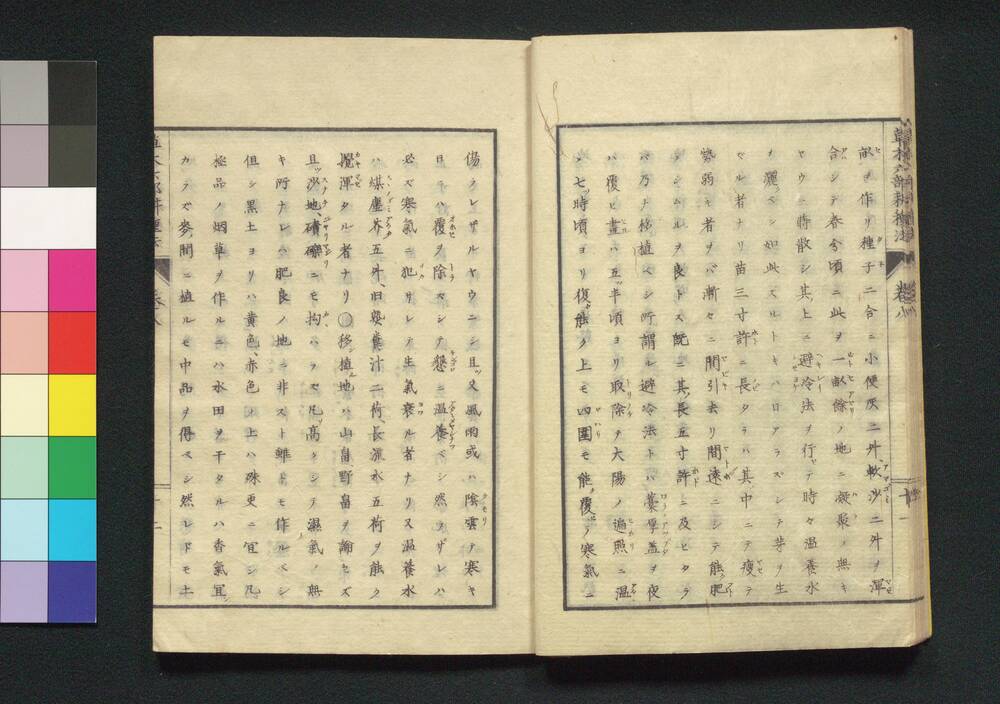 草木六部耕種法 卷八 十一
ヲ作リ種子二合ニ小便灰二升軟沙二升ヲ渾
合シテ春分頃ニ此ヲ一畝餘ノ地ニ凝最ノ無キ
ヤウニ蒔散シ其上ニ避冷法ヲ行ヒテ時々温養水
ヲ灑クベシ如此スルトキハ日アラズシテ芽ヲ生
スル者ナリ苗三寸許ニ長タラハ其中ニテ瘦テ
勢弱キ者ヲバ漸々ニ間引去リ間遠ニシテ能肥
タシムルヲ良トス既ニ其長五寸許ニ及ヒタラ
バ乃チ移植ベシ所謂ル避冷法トハ藁厚蓋ヲ夜
ハ覆ヒ晝ハ五半頃ヨリ取除テ大陽ノ遍照ニ温
シ七時頃ヨリ復能ク上モ四圍モ能覆ヒテ寒氣ニ
傷クレザルヤウニシ且又風雨或ハ陰雲テ寒キ
日ニハ覆ヲ除ズシテ懇ニ温養ベシ然ラザレハ
必ズ寒氣ニ犯サレテ生氣衰ル者ナリ又温養水
ハ煤塵芥五升、旧嬰糞汁二荷、長流水五荷ヲ能ク
攪渾タル者ナリ〇移植地ハ山畠野畠ヲ論セズ
且ツ沙地、磧礫ニモ拘ハラズ凡ソ高クシテ濕氣ノ無
キ所ナレハ肥良ノ地ニ非スト雖トモ作ルベシ
但シ黒土ヨリハ黄色、赤色ノ土ハ殊更ニ宜シ凡
極品ノ烟草ヲ作ルニハ水田ヲ干タルハ香氣宜シ
カラズ麥間ニ植ルモ中品ヲ得ベシ然レドモ土